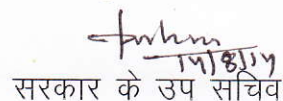 14/8/14
सरकार के उप सचिव